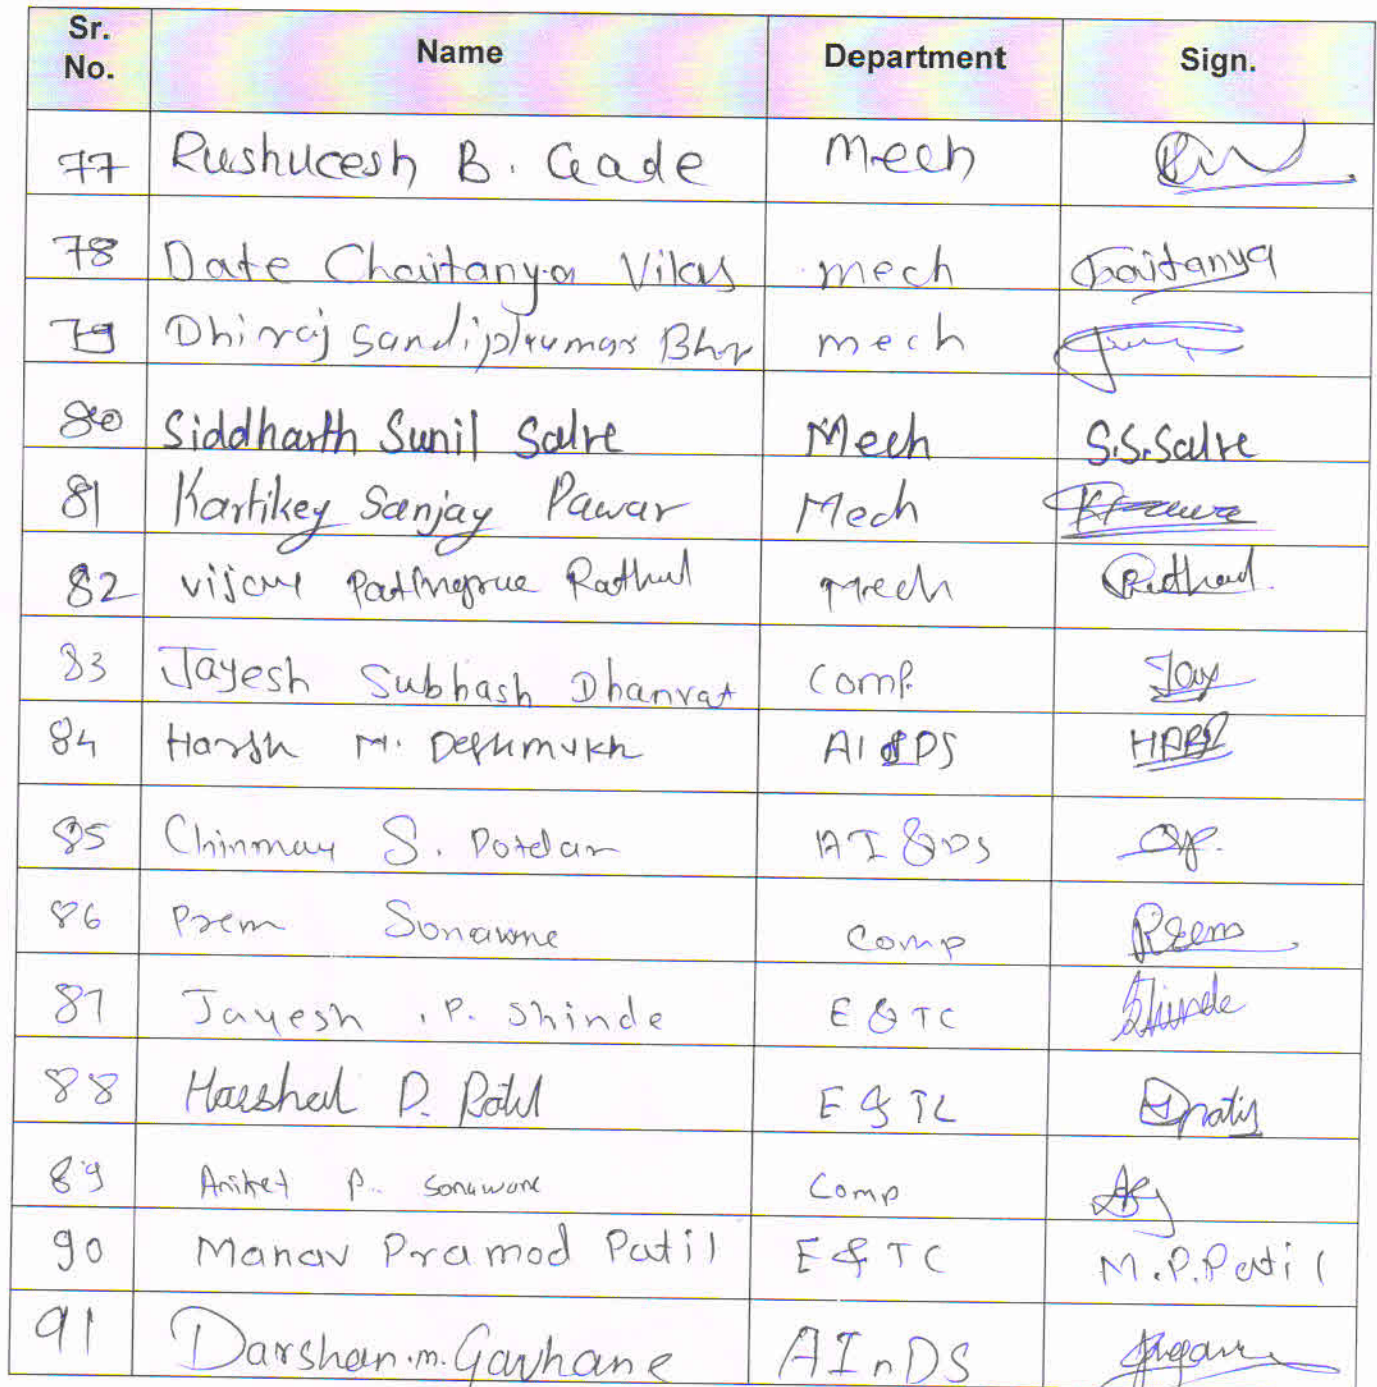 Sr. No. Name Department Sign.
77 Rushucesh B. Gade Mech
78 Date Chaitanya Vikas mech Chaitanya
79 Dhiraj Sandipkumar mech
80 Siddharth Sunil Salve Mech S.S.Salve
81 Kartikey Sanjay Pawar Mech
82 vijay Rathod Mech Rathod
83 Jayesh Subhash Dhanvat Comp. Jay
84 Harsh M. Deshmukh AI & DS
85 Chinmay S. Potdar AI & DS
86 Prem Sonawne Comp Prem
87 Jayesh .P. Shinde E & TC Shinde
88 Harshal D. Patil E & TC
89 Aniket P. Sonawane Comp
90 Manav Pramod Patil E & TC M.P.Patil
91 Darshan.m.Gavhane AInDS